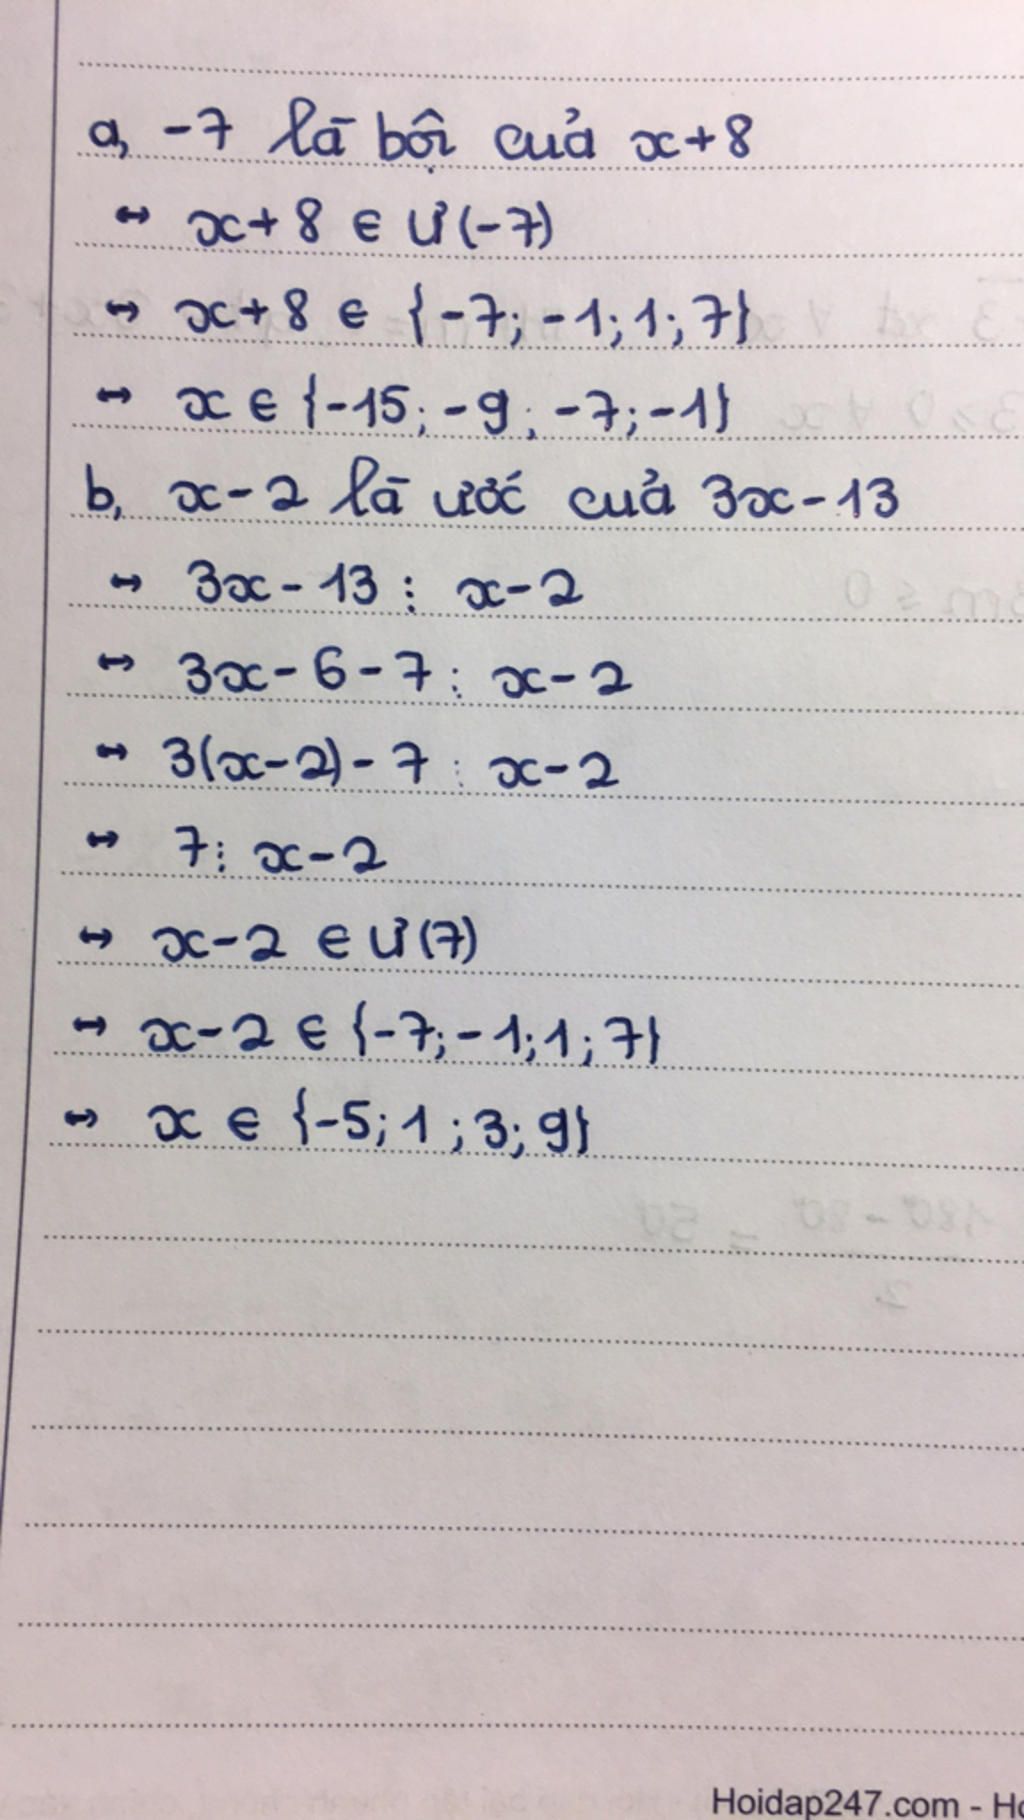 a, -7 là bội của x+8
↔ x+8 ∈ Ư(-7)
↔ x+8 ∈ {-7; -1; 1; 7}
↔ x ∈ {-15; -9; -7; -1}
b, x-2 là ước của 3x-13
↔ 3x-13 ⋮ x-2
↔ 3x-6-7 ⋮ x-2
↔ 3(x-2)-7 ⋮ x-2
↔ 7 ⋮ x-2
↔ x-2 ∈ Ư(7)
↔ x-2 ∈ {-7; -1; 1; 7}
↔ x ∈ {-5; 1; 3; 9}
Hoidap247.com - H